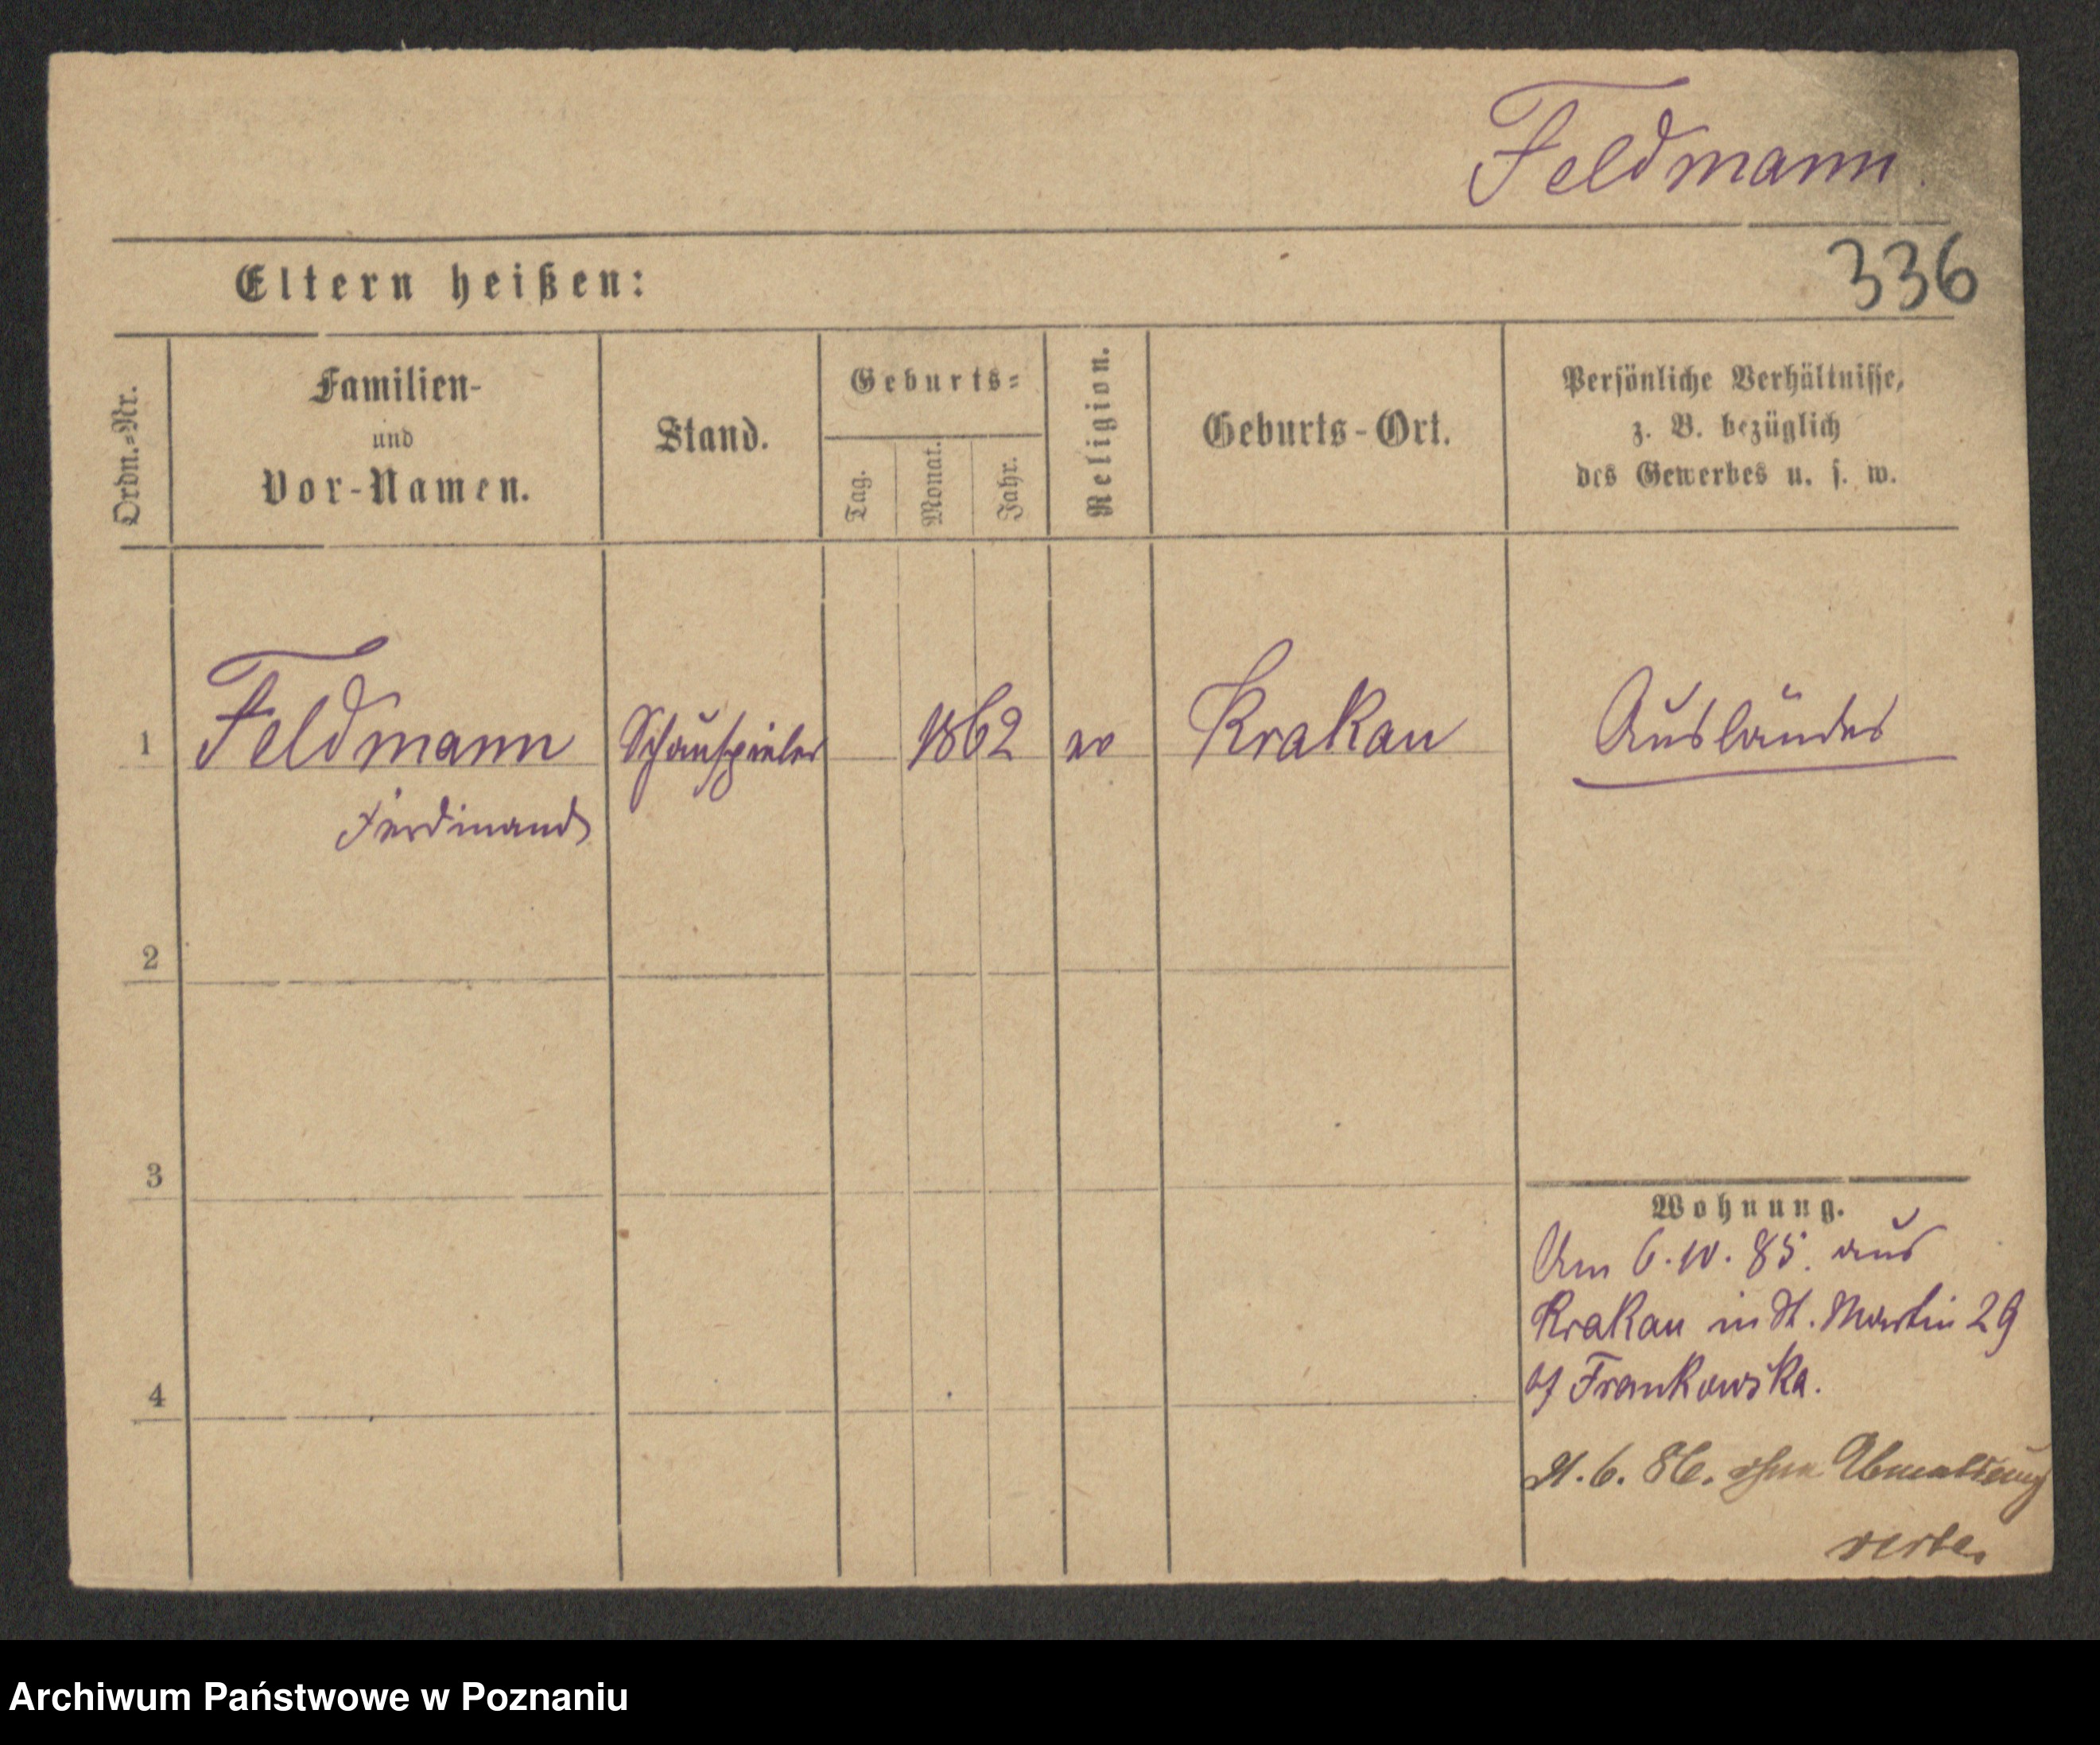 Feldmann.
336
Eltern heißen:
Ordn.-Nr.
Familien-
und
Vor-Namen.
Stand.
Geburts-
Tag.
Monat.
Jahr.
Religion.
Geburts-Ort.
Persönliche Verhältnisse,
z. B. bezüglich
des Gewerbes u. s. w.
1 Feldmann Schauspieler 1862 ev Krakau Ausländer
Ferdinand
2
3
4
Wohnung.
Am 6.10.85. aus
Krakau in St. Martin 29
Frankowska.
6. 86. ohne Abmeldung
Archiwum Państwowe w Poznaniu